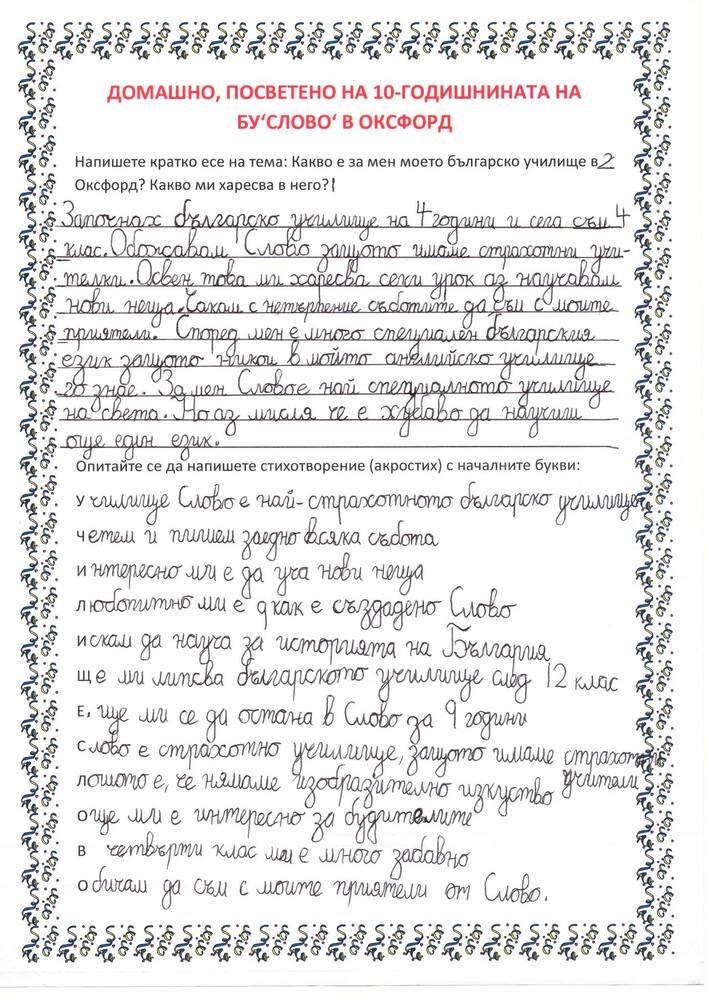 ДОМАШНО, ПОСВЕТЕНО НА 10-ГОДИШНИНАТА НА
БУ‘СЛОВО‘ В ОКСФОРД
Напишете кратко есе на тема: Какво е за мен моето българско училище в 2
Оксфорд? Какво ми харесва в него? 1
Започнах българско училище на 4 години и сега съм 4
клас. Обожавам Слово защото имаме страхотни учи-
телки. Освен това ми харесва секи урок аз научавам
нови неща. Чакам с нетърпение съботите да съм с моите
приятели. Според мен е много специален българския
език защото никои в мойто английско училище
го знае. За мен Слово е най специалното училище
на света. Но аз мисля че е хубаво да научиш
още един език.
Опитайте се да напишете стихотворение (акростих) с началните букви:
училище Слово е най-страхотното българско училище
четем и пишем заедно всяка събота
интересно ми е да уча нови неща
любопитно ми е как е създадено Слово
искам да науча за историята на България
ще ми липсва българското училище след 12 клас
Е, ще ми се да остана в Слово за 9 години
Слово е страхотно училище, защото имаме страхотни
учители
лошото е, че нямаме изобразително изкуство
още ми е интересно за будителите
в четвърти клас ми е много забавно
обичам да съм с моите приятели от Слово.